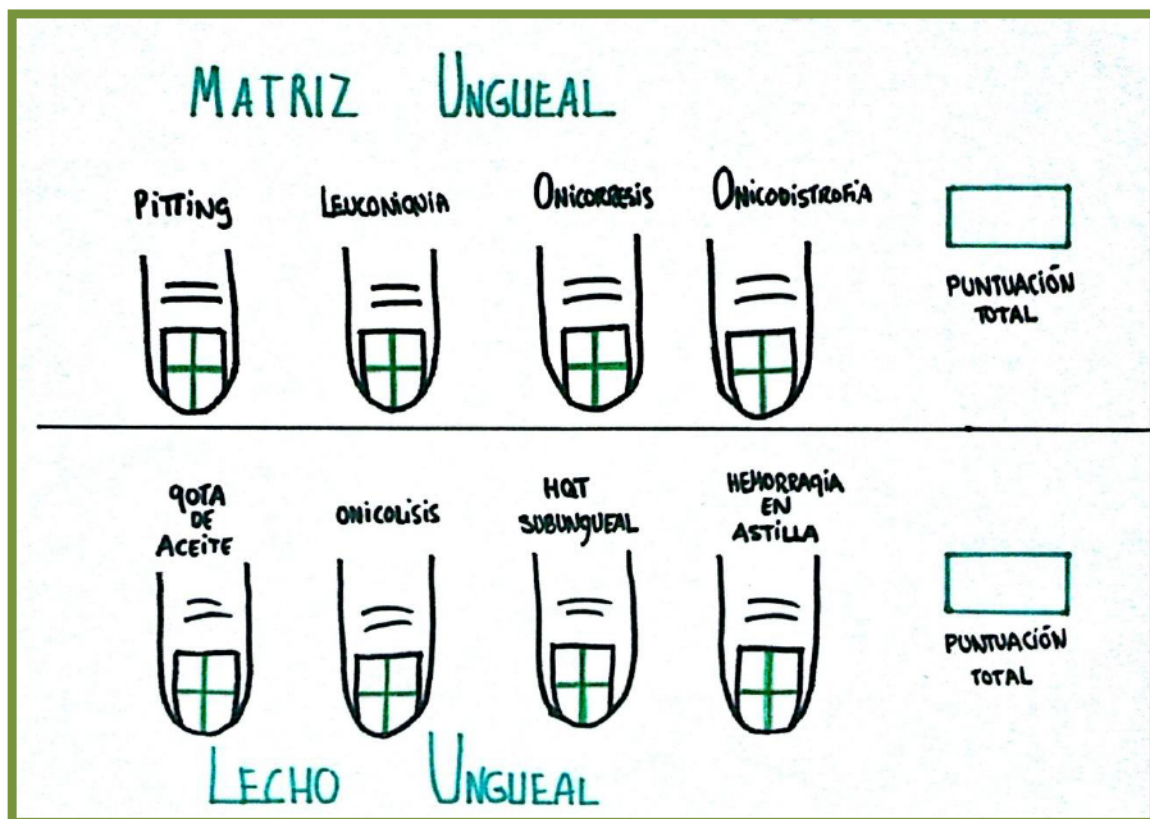 MATRIZ UNGUEAL
PiTTiNg
LEUCONIQUIA
ONICORRESIS
ONICODISTROFIA
PUNTUACIÓN
TOTAL
gOTA
DE
ACEITE
ONICOLISIS
HQT
SUBUNgUEAL
HEMORRAgIA
EN
ASTILLA
PUNTUACIÓN
TOTAL
LECHO UNGUEAL